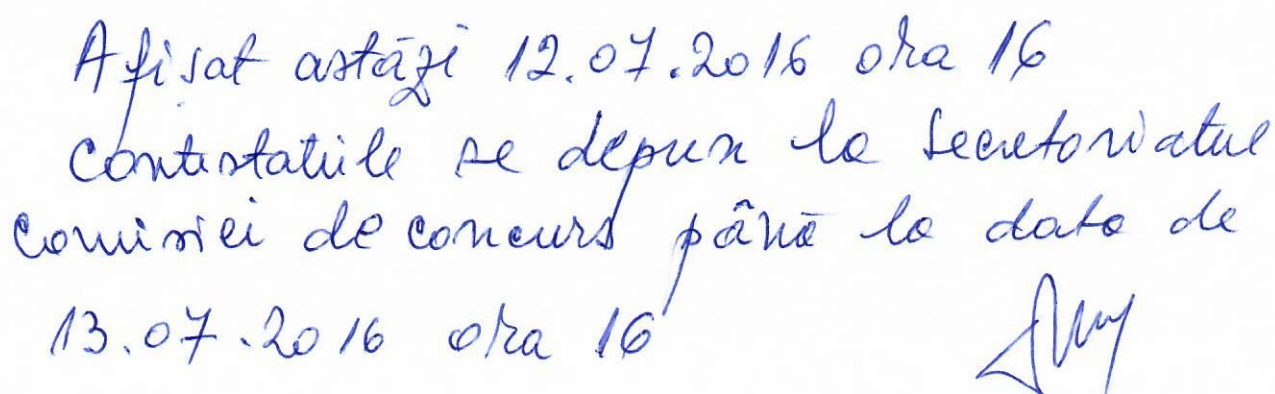 Afisat astăzi 12.07.2016 ora 16
Contestatiile se depun la secretariatul
comisiei de concurs până la data de
13.07.2016 ora 16